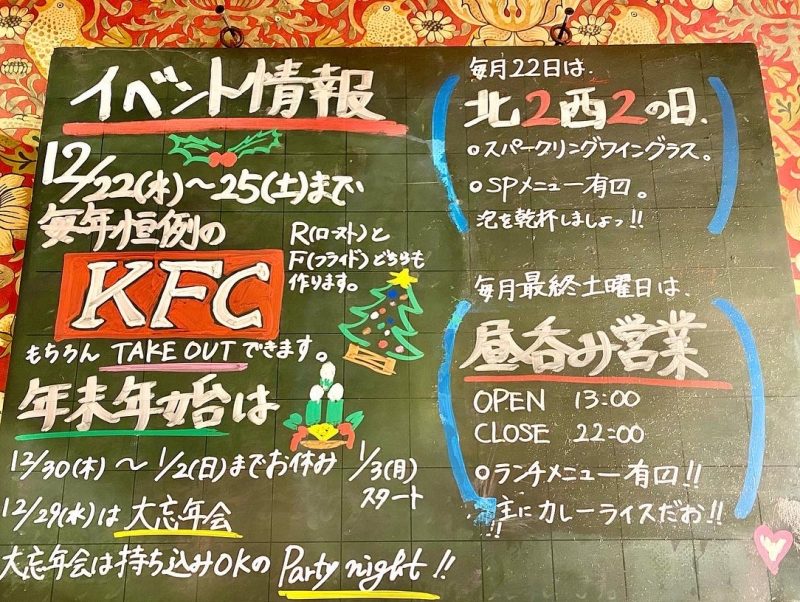 イベント情報
12/22(水)〜25(土)まで
毎年恒例の
KFC
R(ロースト)と
F(フライド)どちらも
作ります。
もちろん TAKE OUT できます。
年末年始は
12/30(木)〜1/2(日)までお休み
1/3(月)
スタート
12/29(水)は 大忘年会
大忘年会は持ち込みOKの Party night!!
毎月22日は、
北2西2の日、
スパークリングワイングラス。
SPメニュー有回。
乾杯しましょっ!!
毎月最終土曜日は、
昼呑み営業
OPEN 13:00
CLOSE 22:00
ランチメニュー有回!!
主にカレーライスだお!!
!!